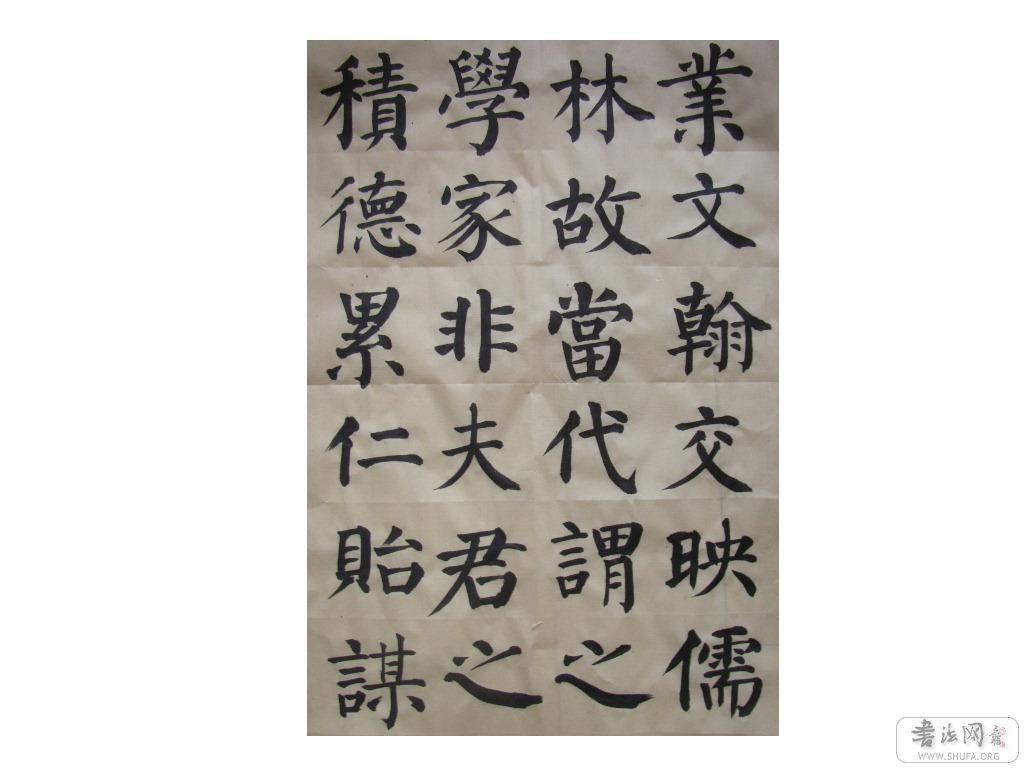 業文翰交映儒
林故當代謂之
學家非夫君之
積德累仁貽謀
書法网
WWW.SHUFA.ORG